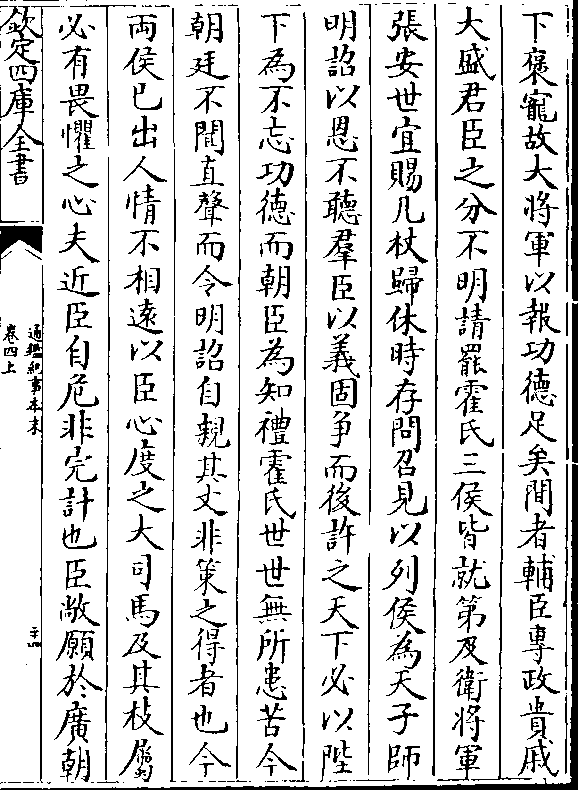 下褒寵故大將軍以報功德足矣間者輔臣專政貴戚
大盛君臣之分不明請罷霍氏三侯皆就第及衛將軍
張安世宜賜几杖歸休時存問召見以列侯為天子師
明詔以恩不聽羣臣以義固爭而後許之天下必以陛
下為不忘功德而朝臣為知禮霍氏世世無所患苦今
朝廷不聞直聲而令明詔自親其文非策之得者也今
兩侯已出人情不相遠以臣心度之大司馬及其枝屬
必有畏懼之心夫近臣自危非完計也臣敞願於廣朝
欽定四庫全書
通鑑紀事本末
卷四上
二十四